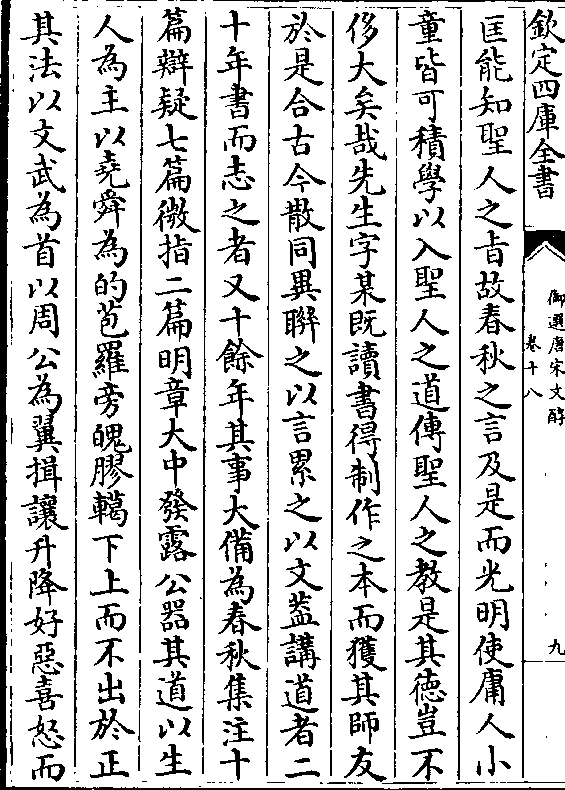 欽定四庫全書
御選唐宋文醇
卷十八
九
匡能知聖人之㫖故春秋之言及是而光明使庸人小
童皆可積學以入聖人之道傳聖人之教是其徳豈不
侈大矣哉先生字某既讀書得制作之本而獲其師友
於是合古今散同異聨之以言累之以文葢講道者二
十年書而志之者又十餘年其事大備為春秋集注十
篇辯疑七篇微指二篇明章大中發露公器其道以生
人為主以堯舜為的苞羅旁魄膠轕下上而不出於正
其法以文武為首以周公為翼揖讓升降好惡喜怒而